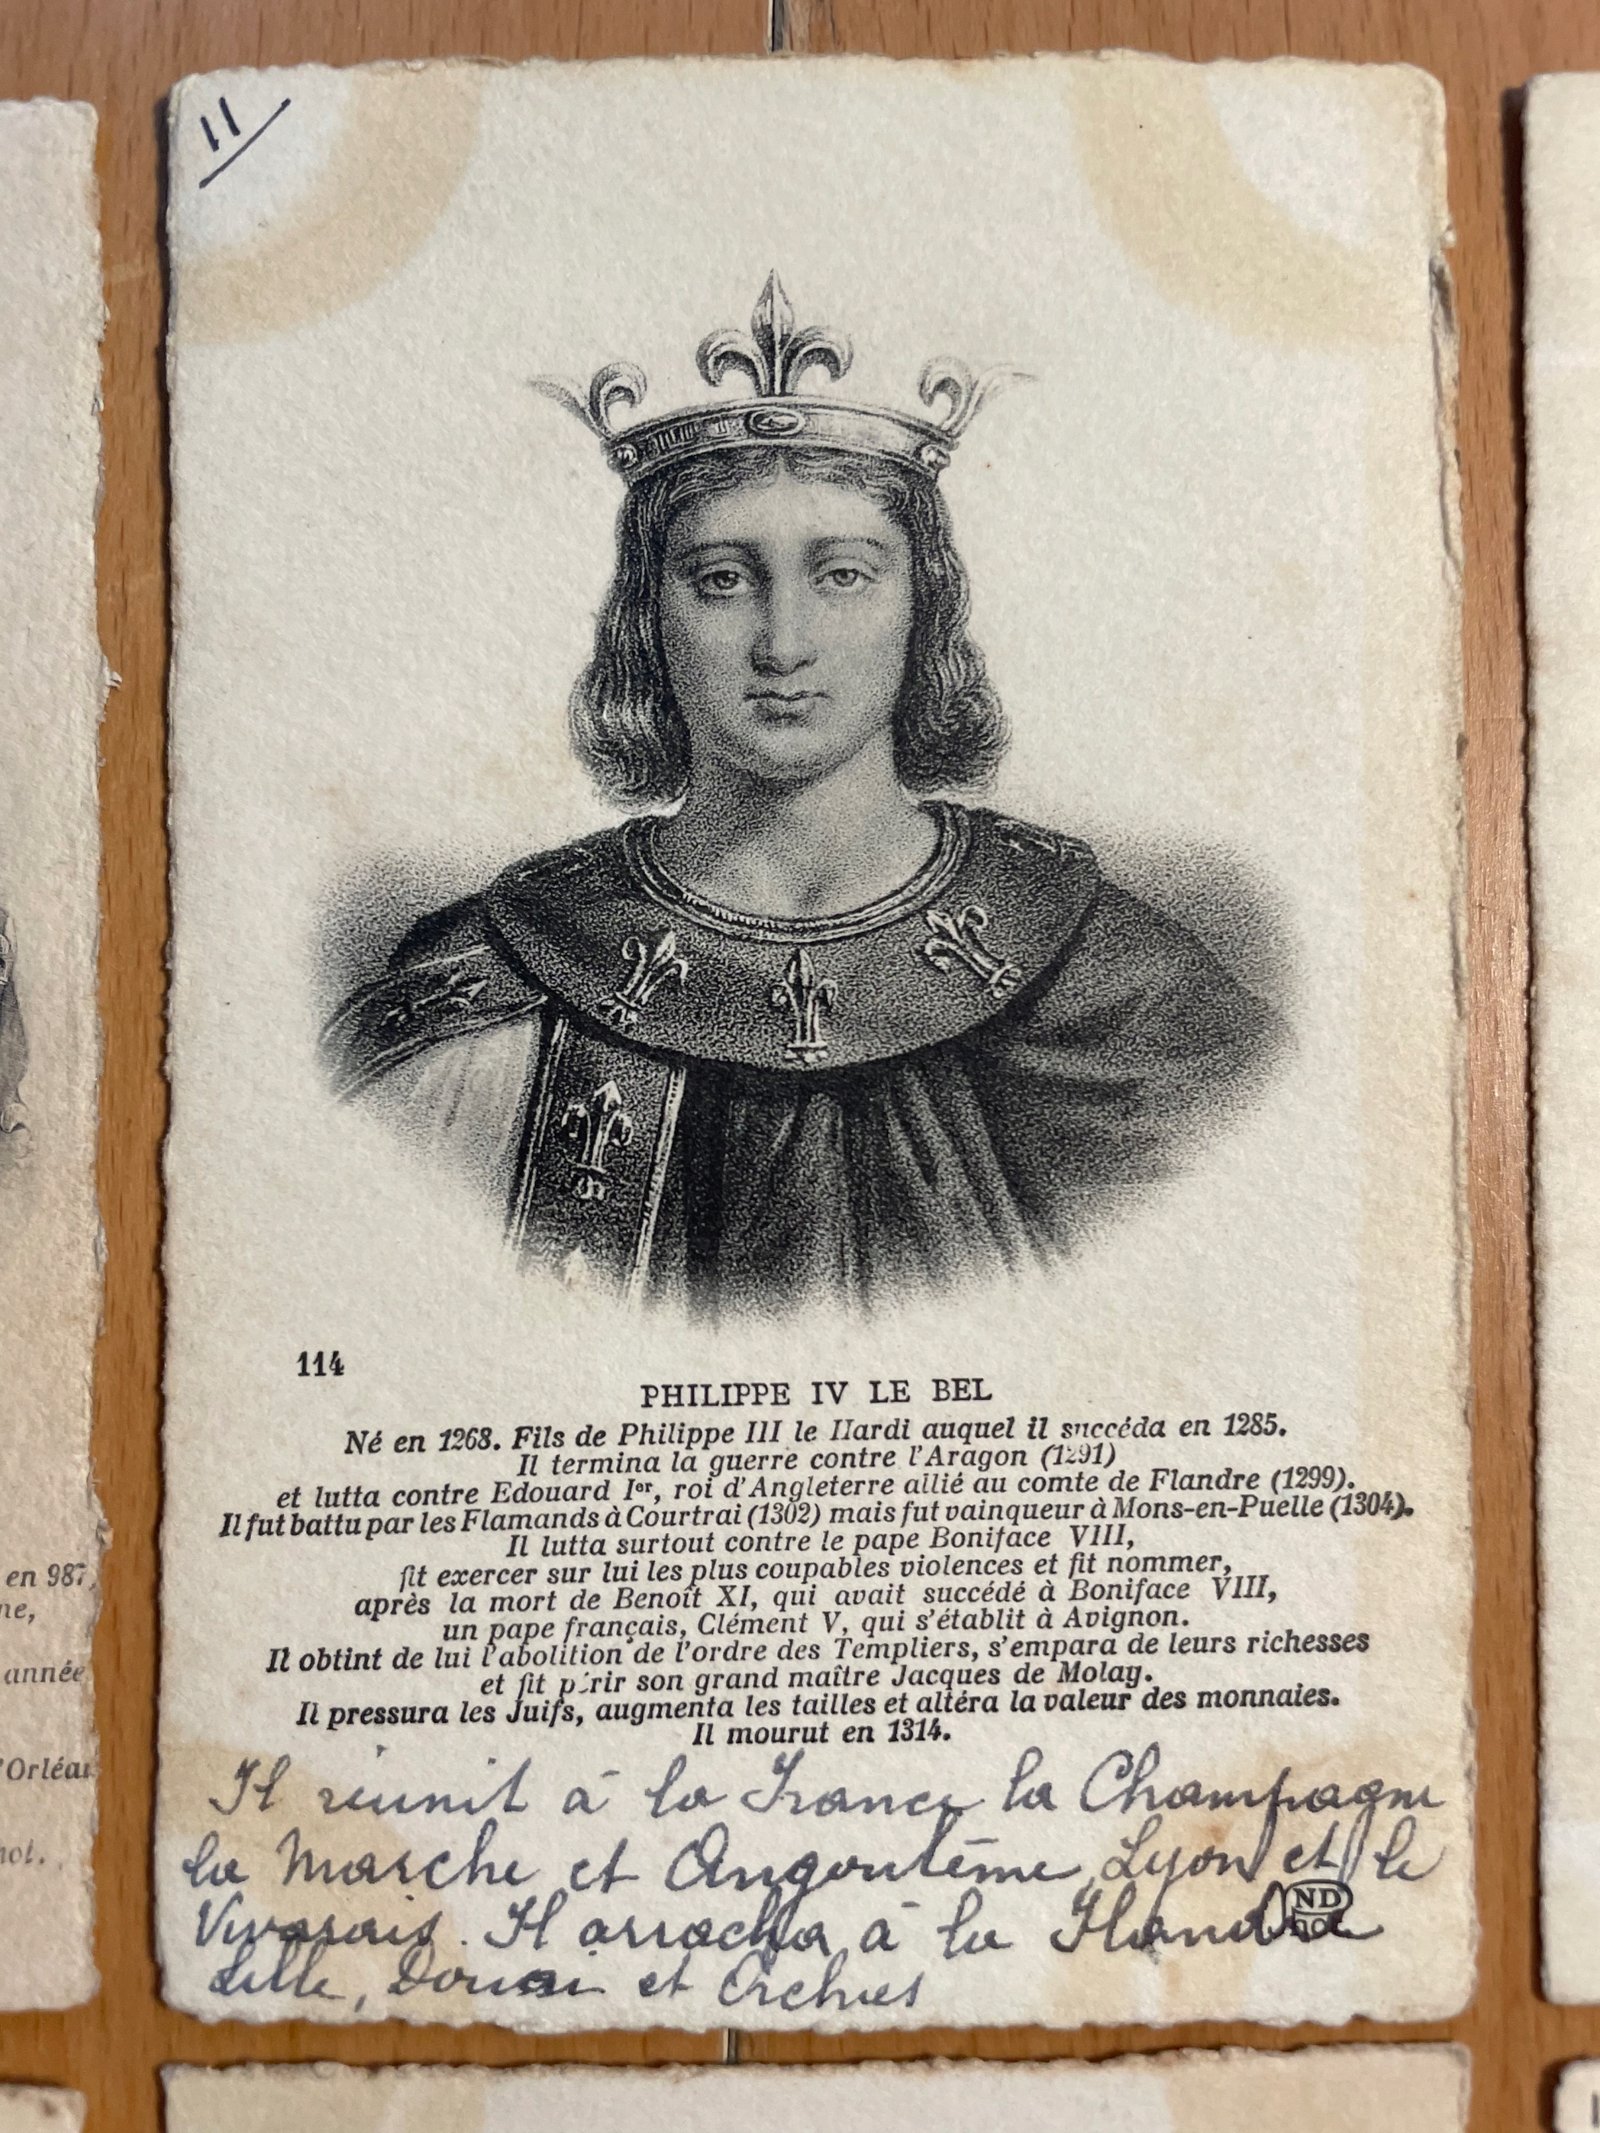 11
114
PHILIPPE IV LE BEL
Né en 1268. Fils de Philippe III le Hardi auquel il succéda en 1285.
Il termina la guerre contre l'Aragon (1291)
et lutta contre Edouard Ier, roi d'Angleterre allié au comte de Flandre (1299).
Il fut battu par les Flamands à Courtrai (1302) mais fut vainqueur à Mons-en-Puelle (1304).
Il lutta surtout contre le pape Boniface VIII,
fit exercer sur lui les plus coupables violences et fit nommer,
après la mort de Benoît XI, qui avait succédé à Boniface VIII,
un pape français, Clément V, qui s'établit à Avignon.
Il obtint de lui l'abolition de l'ordre des Templiers, s'empara de leurs richesses
et fit périr son grand maître Jacques de Molay.
Il pressura les Juifs, augmenta les tailles et altéra la valeur des monnaies.
Il mourut en 1314.
Il réunit à la France la Champagne
la Marche et Angoulême, Lyon et le
Vivarais. Il arracha à la Flandre
Lille, Douai et Orchies
ND
Phot
en 987,
ne,
année
d'Orléans
hot.